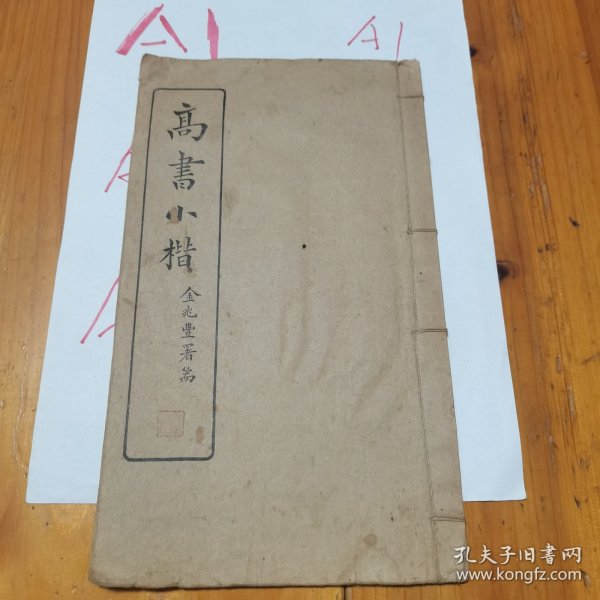 A1
A1
高書小楷
金兆豐署耑
孔夫子旧書网
www.kongfz.com